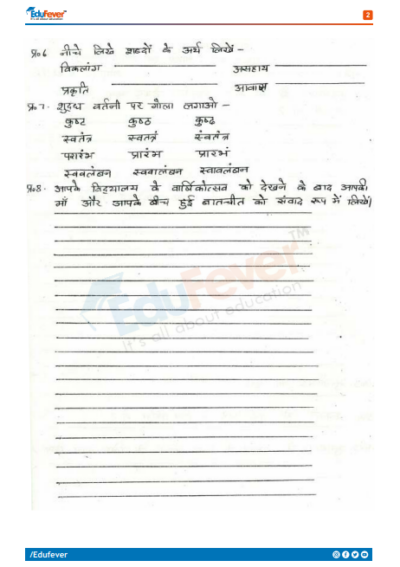 EduFever
2
प्र०6 नीचे लिखे शब्दों के अर्थ लिखें –
विकलांग असहाय
प्रकृति आवास
प्र०7. शुद्ध वर्तनी पर गोला लगाओ –
कुष्ट कुष्ठ
स्वतंत्र स्वतत्रं स्ंवतंत्र
प्रारंभ प्रारभं
स्ववलंबन स्वावालंबन स्वावलंबन
प्र०8. आपके विद्यालय के वार्षिकोत्सव को देखने के बाद आपकी
माँ और आपके बीच हुई बातचीत को संवाद रूप में लिखें।
EduFever
it's all about education
TM
/Edufever